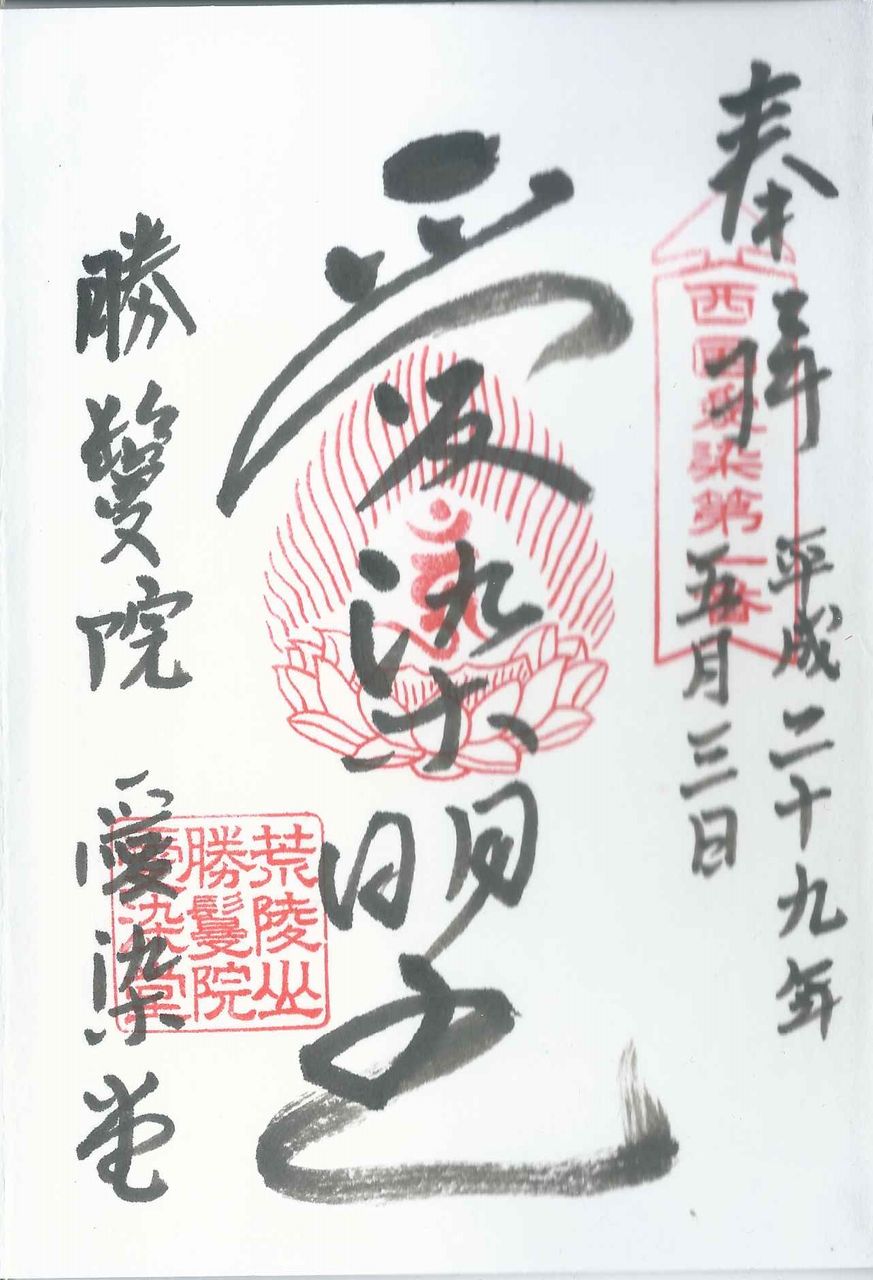 奉拝
西國愛染第一番
平成二十九年
五月三日
愛染明王
荒陵山
勝鬘院
愛染堂
勝鬘院 愛染堂